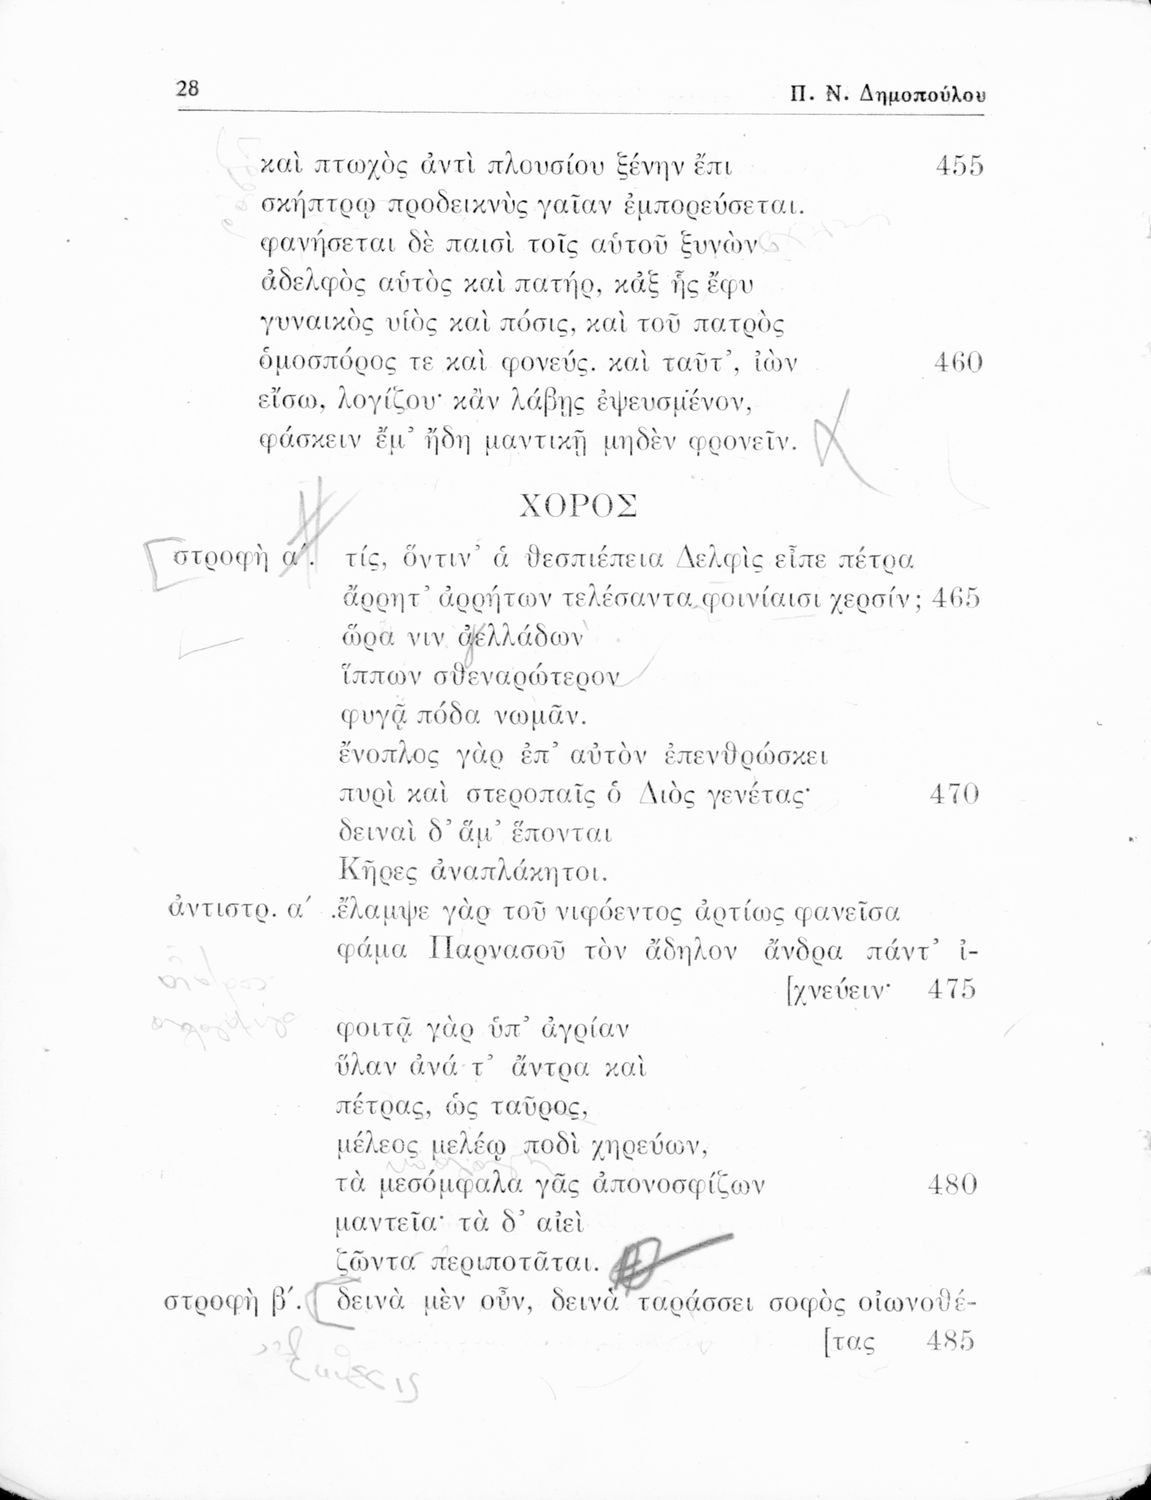 28
Π. Ν. Δημοπούλου
καὶ πτωχὸς ἀντὶ πλουσίου ξένην ἔπι 455
σκήπτρῳ προδεικνὺς γαῖαν ἐμπορεύσεται.
φανήσεται δὲ παισὶ τοῖς αὑτοῦ ξυνὼν
ἀδελφὸς αὑτὸς καὶ πατήρ, κἀξ ἧς ἔφυ
γυναικὸς υἱὸς καὶ πόσις, καὶ τοῦ πατρὸς
ὁμοσπόρος τε καὶ φονεύς. καὶ ταῦτ’, ἰὼν 460
εἴσω, λογίζου· κἂν λάβῃς ἐψευσμένον,
φάσκειν ἔμ’ ἤδη μαντικῇ μηδὲν φρονεῖν.
ΧΟΡΟΣ
στροφὴ α΄. τίς, ὅντιν’ ἁ θεσπιέπεια Δελφὶς εἶπε πέτρα
ἄρρητ’ ἀρρήτων τελέσαντα φοινίαισι χερσίν; 465
ὥρα νιν ἀελλάδων
ἵππων σθεναρώτερον
φυγᾷ πόδα νωμᾶν.
ἔνοπλος γὰρ ἐπ’ αὐτὸν ἐπενθρώσκει
πυρὶ καὶ στεροπαῖς ὁ Διὸς γενέτας· 470
δειναὶ δ’ ἅμ’ ἕπονται
Κῆρες ἀναπλάκητοι.
ἀντιστρ. α΄ .ἔλαμψε γὰρ τοῦ νιφόεντος ἀρτίως φανεῖσα
φάμα Παρνασοῦ τὸν ἄδηλον ἄνδρα πάντ’ ἰ-
[χνεύειν· 475
φοιτᾷ γὰρ ὑπ’ ἀγρίαν
ὕλαν ἀνά τ’ ἄντρα καὶ
πέτρας, ὡς ταῦρος,
μέλεος μελέῳ ποδὶ χηρεύων,
τὰ μεσόμφαλα γᾶς ἀπονοσφίζων 480
μαντεῖα· τὰ δ’ αἰεὶ
ζῶντα περιποτᾶται.
στροφὴ β΄. δεινὰ μὲν οὖν, δεινὰ ταράσσει σοφὸς οἰωνοθέ-
[τας 485